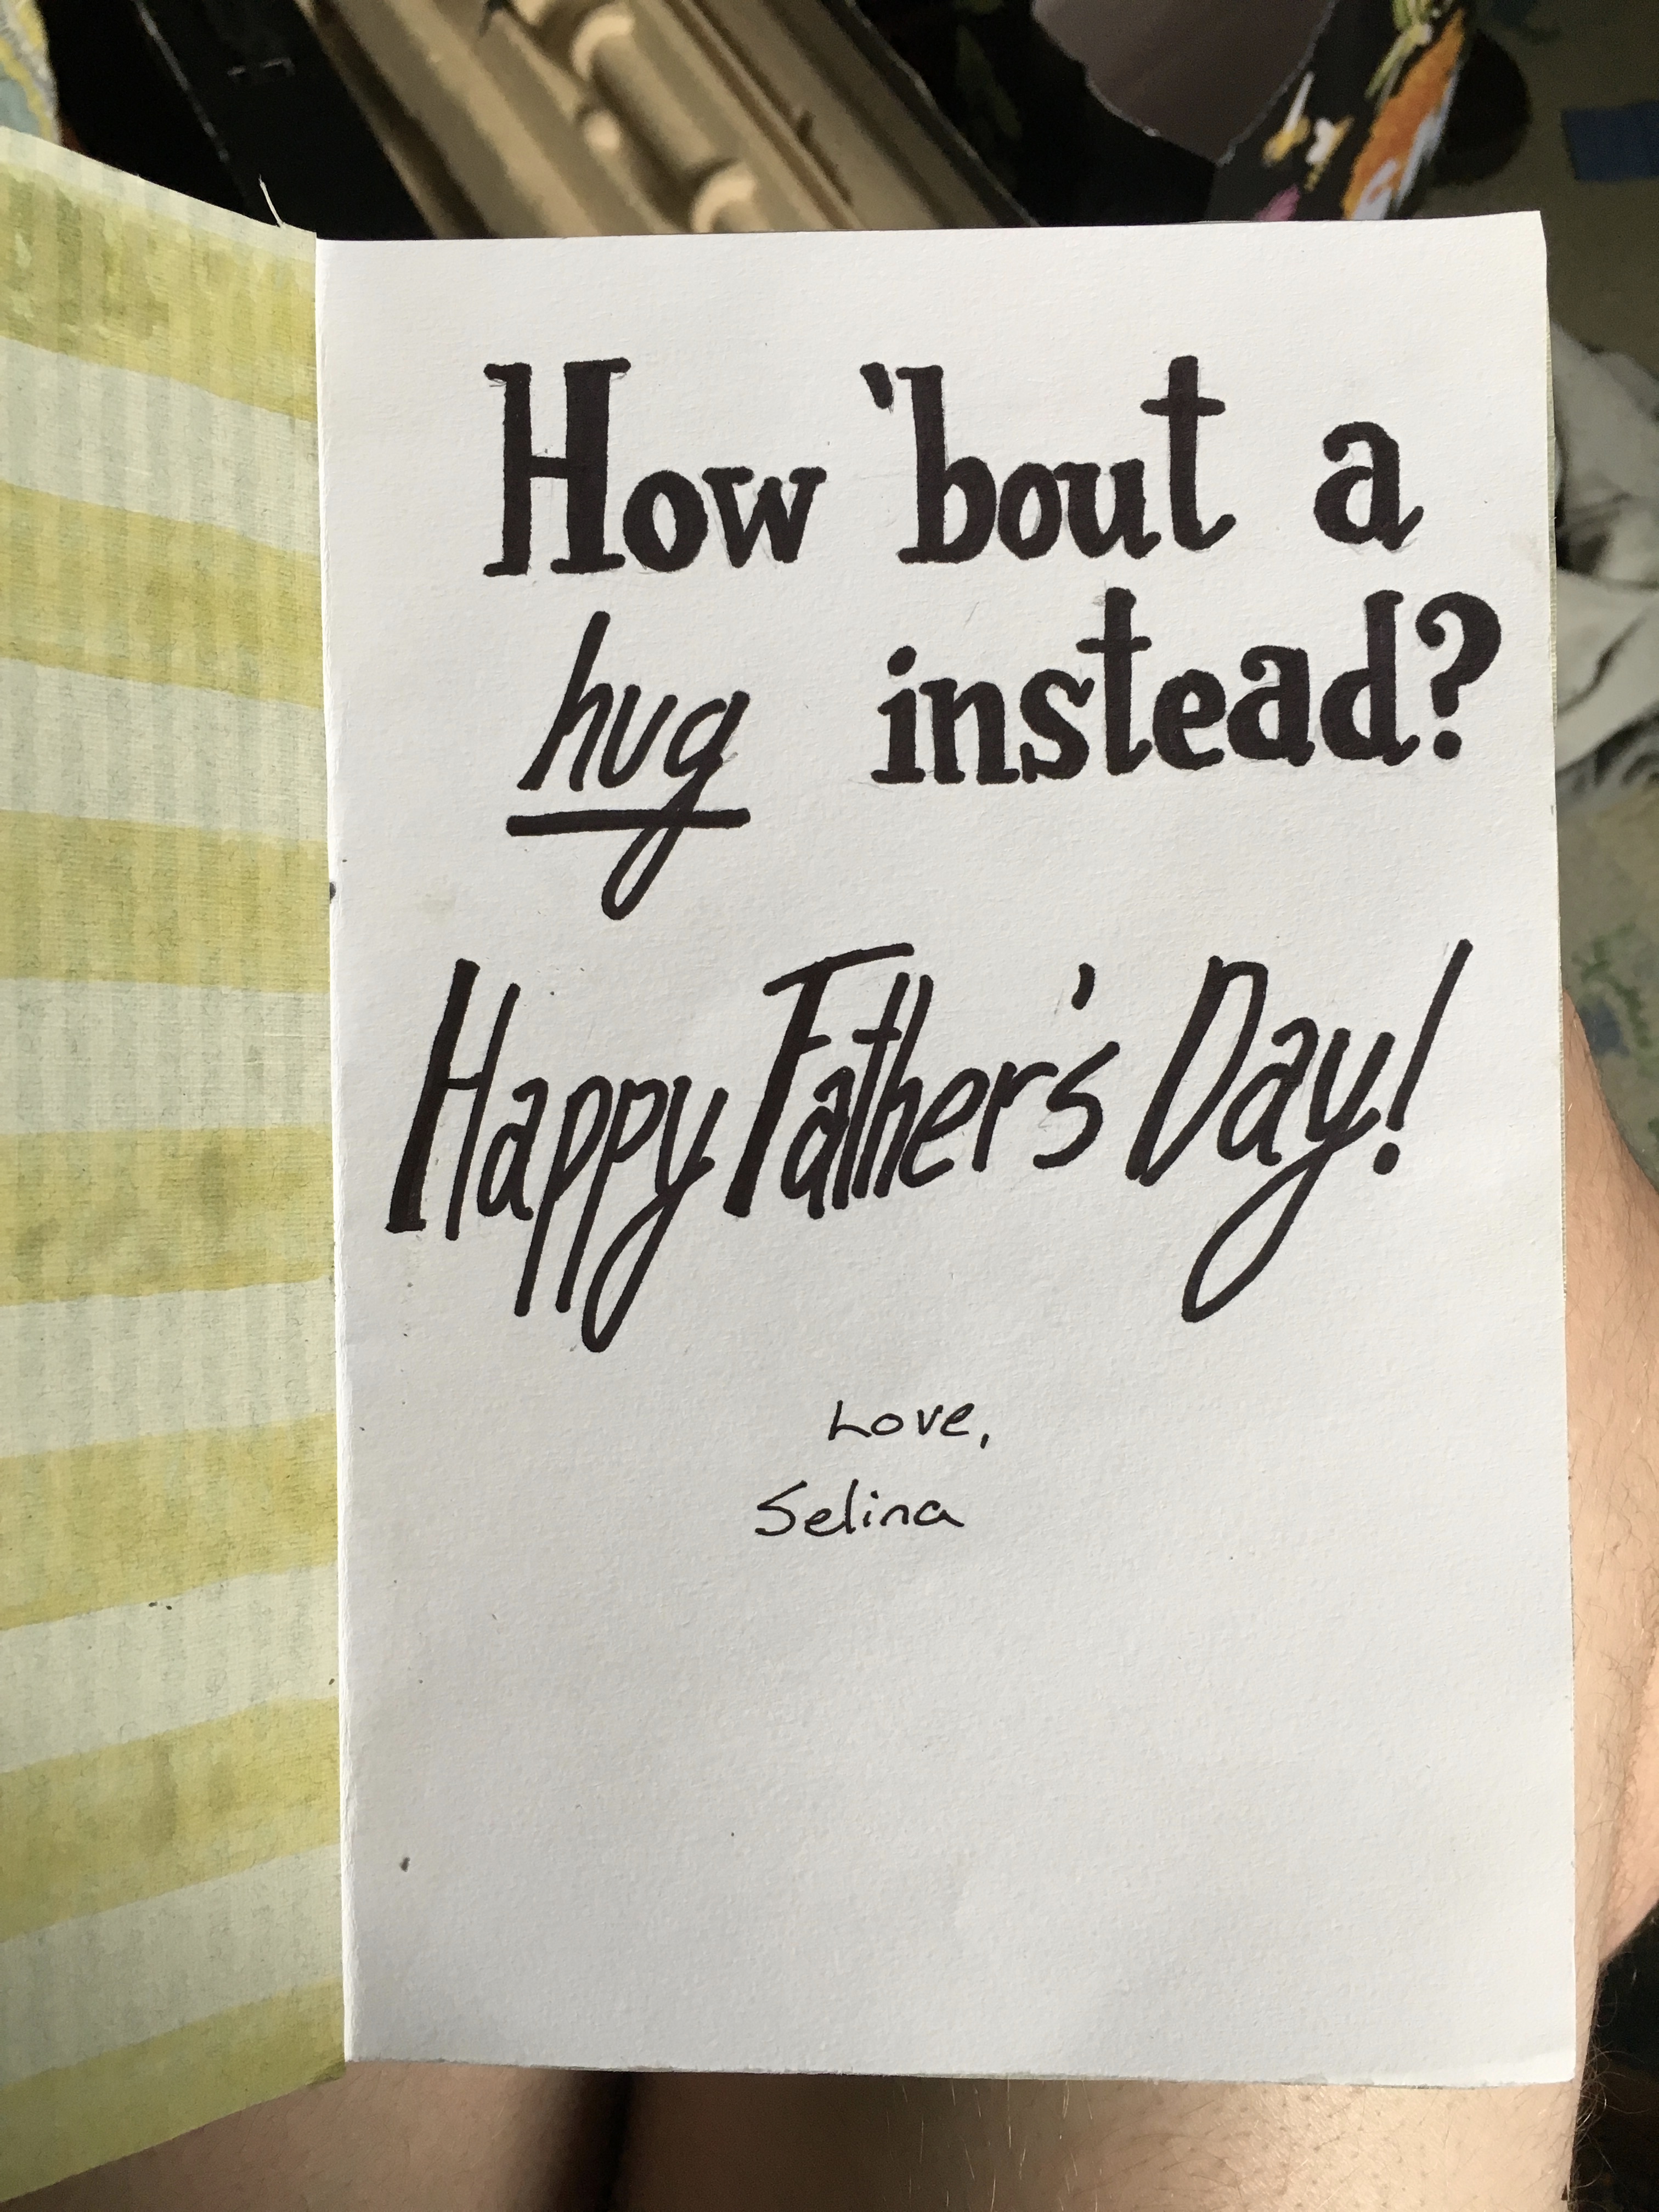 How 'bout a
hug instead?
Happy Father's Day!
Love,
Selina